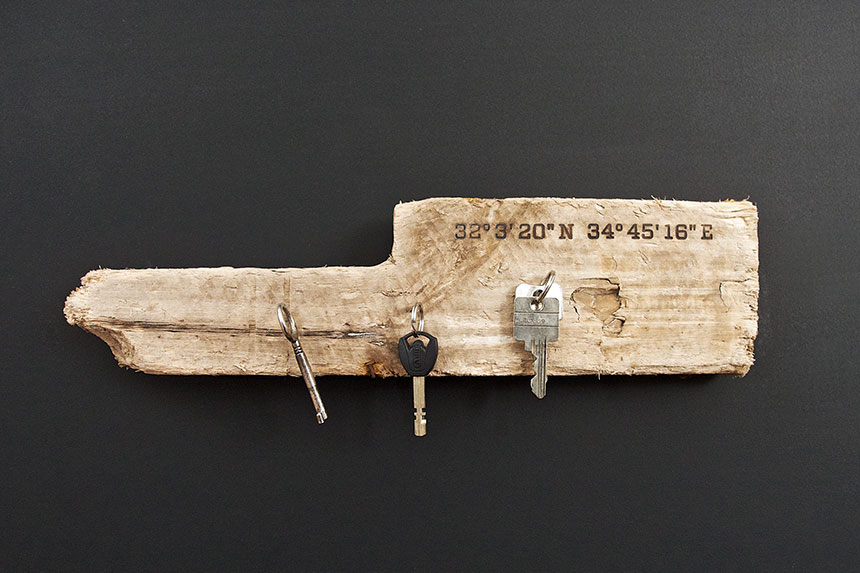 32°3'20"N 34°45'16"E